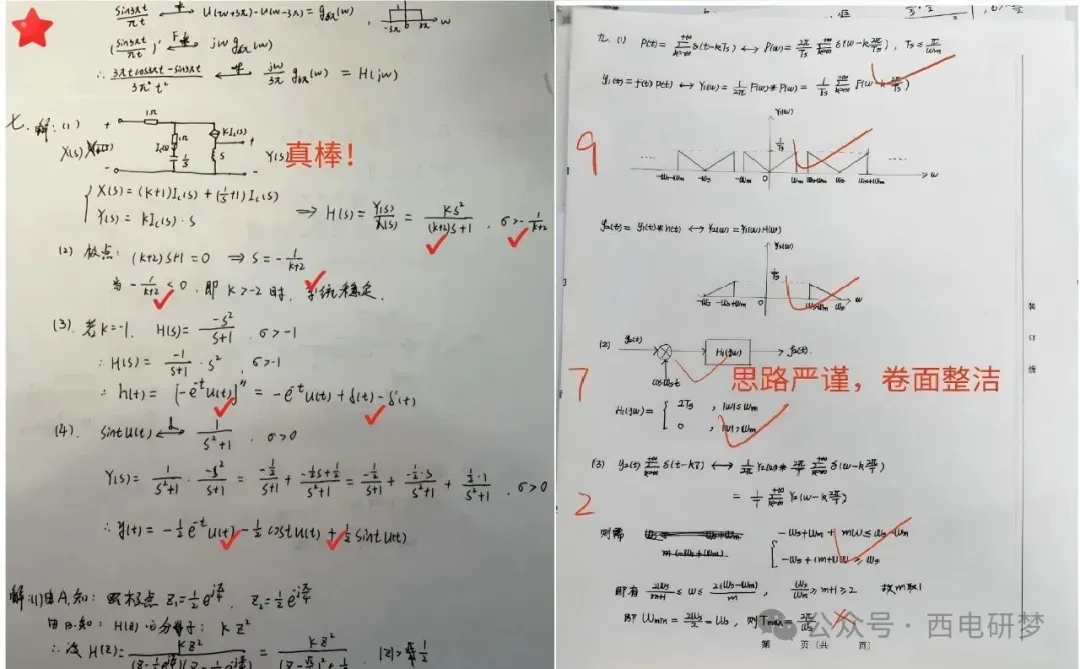 sin3πt/πt ↔ U(w+3π)-U(w-3π) = g₆π(w)
-3π 0 3π w
(sin3πt/πt)' ↔F jw g₆π(w)
∴ (3πtcos3πt-sin3πt)/(3π²t²) ↔F jw/3π g₆π(w) = H(jw)
七. 解: (1)
1Ω
1Ω
KI₁(s)
X(s)
1/s
s
Y(s)
真棒!
X(s) = (k+1)I₁(s) + (1/s+1)I₁(s)
Y(s) = KI₁(s)·s
⇒ H(s) = Y(s)/X(s) = Ks²/((k+2)s+1), σ>-1/(k+2)
(2) 极点: (k+2)s+1=0 ⇒ s=-1/(k+2)
当 -1/(k+2) < 0, 即 k>-2 时, 系统稳定.
(3). 若k=-1, H(s) = -s²/(s+1), σ>-1
∴ H(s) = -1/(s+1) · s², σ>-1
∴ h(t) = [-e⁻ᵗu(t)]'' = -e⁻ᵗu(t)+δ(t)-δ'(t)
(4). sintu(t) ↔L 1/(s²+1), σ>0
Y(s) = 1/(s²+1) · -s²/(s+1) = (-1/2)/(s+1) + (-1/2s+1/2)/(s²+1) = (-1/2)/(s+1) + (-1/2·s)/(s²+1) + (1/2·1)/(s²+1), σ>0
∴ y(t) = -1/2e⁻ᵗu(t) - 1/2costu(t) + 1/2sintu(t)
解: (1) 由A.知: 极点 Z₁=1/2e^(jπ/4), Z₂=1/2e^(-jπ/4)
由B.知: H(z)的分子: KZ²
九. (1) P(t)=∑δ(t-kTs) ↔ P(w)=2π/Ts ∑δ(w-k2π/Ts), Ts≤π/wm
y₁(t)=f(t)p(t) ↔ Y₁(w)=1/2π F(w)*P(w)=1/Ts ∑F(w-k2π/Ts)
9
Y₁(w)
1/Ts
-ws-wm -ws -wm 0 wm ws-wm ws ws+wm w
y₂(t)=y₁(t)*h(t) ↔ Y₂(w)=Y₁(w)H(w)
Y₂(w)
1/Ts
-ws -ws+wm 0 ws-wm ws w
(2) y₂(t) H₁(jw)
coswst
7
思路严谨，卷面整洁
H₁(jw)= { 2Ts, |w|≤wm
0, |w|>wm
(3) y₂(t)∑δ(t-kT) ↔ 1/2π Y₂(w)*2π/T ∑δ(w-k2π/T)
= 1/T ∑Y₂(w-k2π/T)
2
则需
-ws+wm + mw ≤ ws-wm
-ws+(m+1)w ≥ ws
即有 2ws/(m+1) ≤ w ≤ 2(ws-wm)/m, ws/wm ≥ m+1 ≥ 2 故m取1
即 wmin=2ws/2=ws, 则Tmax=2π/ws
装
订
线
公众号·西电研梦
第 页(共 页)